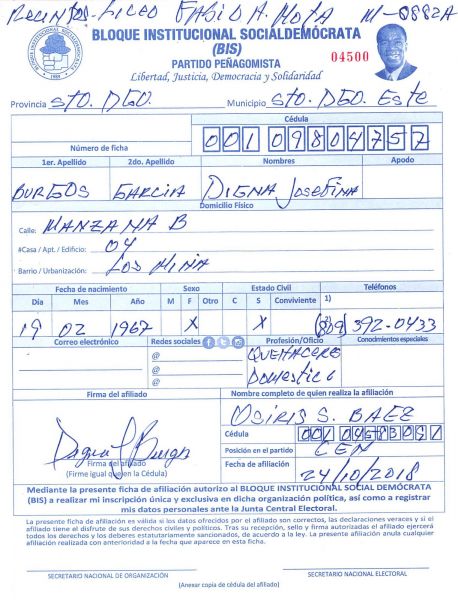 Recinto: Liceo Fabio A. Mota M-0882A
BLOQUE INSTITUCIONAL SOCIALDEMÓCRATA
(BIS)
PARTIDO PEÑAGOMISTA
04500
Libertad, Justicia, Democracia y Solidaridad
Provincia STO. DGO. Municipio STO. DGO. Este
Cédula
Número de ficha 001 0980475 2
1er. Apellido 2do. Apellido Nombres Apodo
Burgos Garcia Digna Josefina
Domicilio Físico
Calle: Manzana B
#Casa / Apt. / Edificio: 04
Barrio / Urbanización: Los Mina
Fecha de nacimiento Sexo Estado Civil Teléfonos
Día Mes Año M F Otro C S Conviviente 1)
19 02 1967 X X 2) (809) 392-0433
Correo electrónico Redes sociales Profesión/Oficio Conocimientos especiales
@ Quehaceres
@ Domestico
@
Firma del afiliado Nombre completo de quien realiza la afiliación
Osiris S. Baez
Cédula
Posición en el partido CEN
Firma del afiliado
(Firme igual que en la Cédula)
Fecha de afiliación 24/10/2018
Mediante la presente ficha de afiliación autorizo al BLOQUE INSTITUCIONAL SOCIAL DEMÓCRATA
(BIS) a realizar mi inscripción única y exclusiva en dicha organización política, así como a registrar
mis datos personales ante la Junta Central Electoral.
La presente ficha de afiliación es válida si los datos ofrecidos por el afiliado son correctos, las declaraciones veraces y si el
afiliado tiene el disfrute de sus derechos civiles y políticos. Tras su recepción, sello y firma autorizadas el afiliado ejercerá
todos los derechos y los deberes estatutariamente sancionados, de acuerdo a la ley. La presente afiliación anula cualquier
afiliación realizada con anterioridad a la fecha que aparece en esta ficha.
SECRETARIO NACIONAL DE ORGANIZACIÓN SECRETARIO NACIONAL ELECTORAL
(Anexar copia de cédula del afiliado)